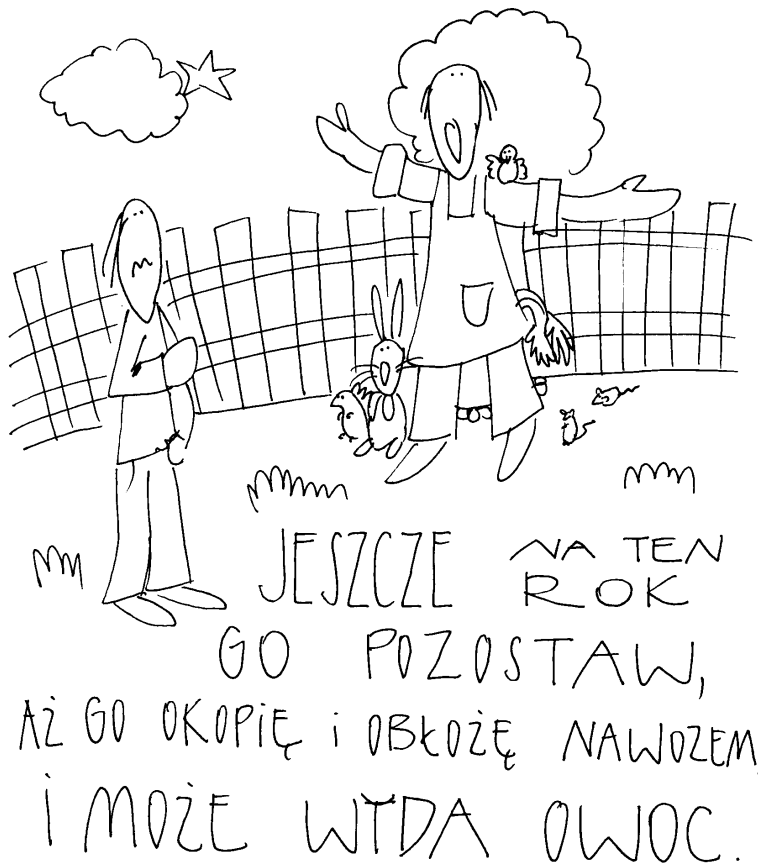 JESZCZE NA TEN
ROK
GO POZOSTAW,
AŻ GO OKOPIĘ i OBŁOŻĘ NAWOZEM,
i MOŻE WYDA OWOC.